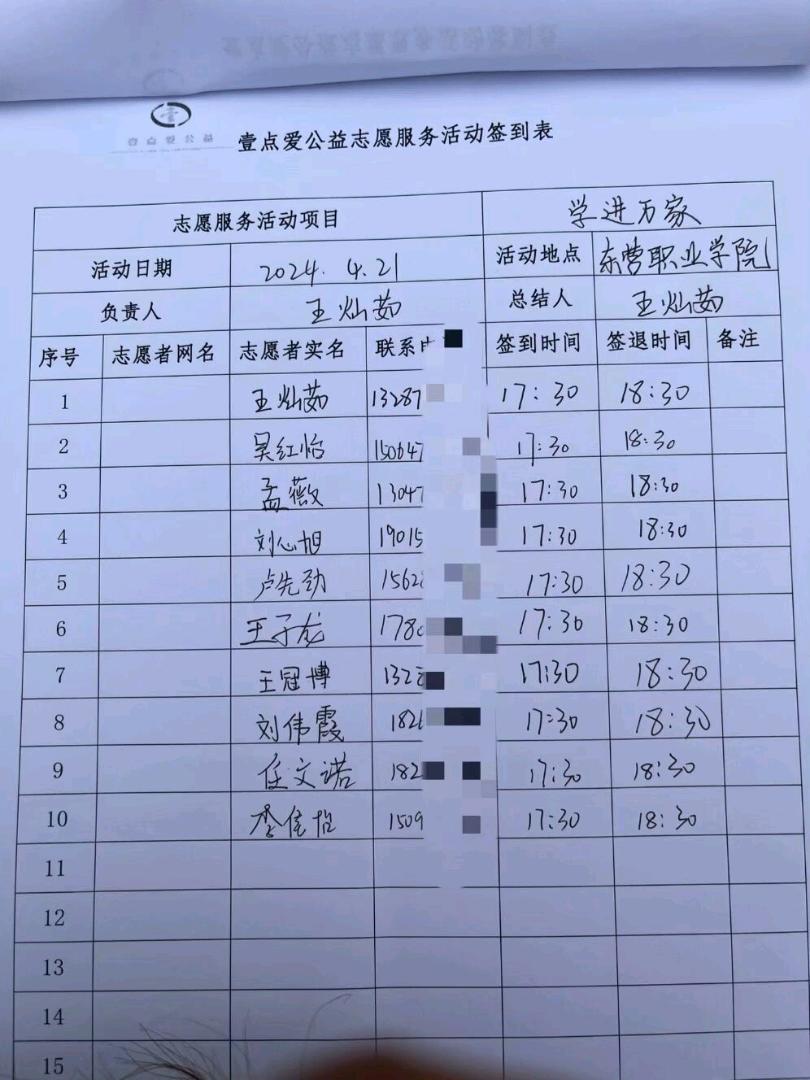 壹点爱公益
壹点爱公益志愿服务活动签到表
志愿服务活动项目 学进万家
活动日期 2024. 4.21 活动地点 东营职业学院
负责人 王灿茹 总结人 王灿茹
序号 志愿者网名 志愿者实名 联系 签到时间 签退时间 备注
1 王灿茹 13287 17:30 18:30
2 吴红怡 150647 17:30 18:30
3 孟薇 13047 17:30 18:30
4 刘心旭 19015 17:30 18:30
5 卢先劲 1562 17:30 18:30
6 王子龙 178 17:30 18:30
7 王冠博 132 17:30 18:30
8 刘伟霞 182 17:30 18:30
9 任文诺 182 17:30 18:30
10 李佳怡 1509 17:30 18:30
11
12
13
14
15